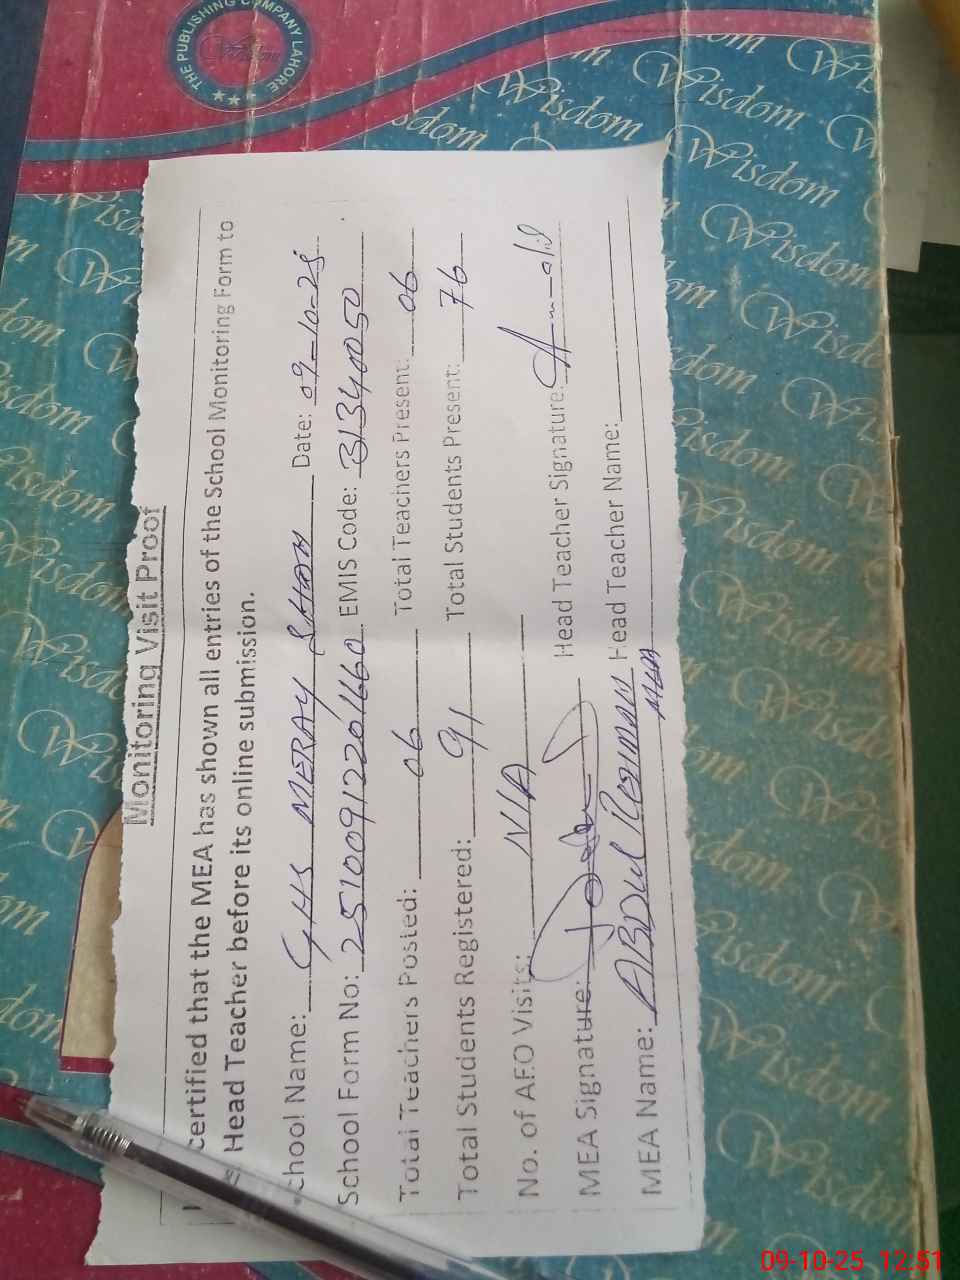 THE PUBLISHING COMPANY LAHORE
Wisdom
Monitoring Visit Proof
certified that the MEA has shown all entries of the School Monitoring Form to
Head Teacher before its online submission.
School Name: GHS MERAY SHAH Date: 09-10-25
School Form No: 25100912201660 EMIS Code: 31340050
Total Teachers Posted: 06 Total Teachers Present: 06
Total Students Registered: 91 Total Students Present: 76
No. of AEO Visits: N/A
MEA Signature: Head Teacher Signature:
MEA Name: ABDUL REHMAN Head Teacher Name:
MEA
09-10-25 12:51